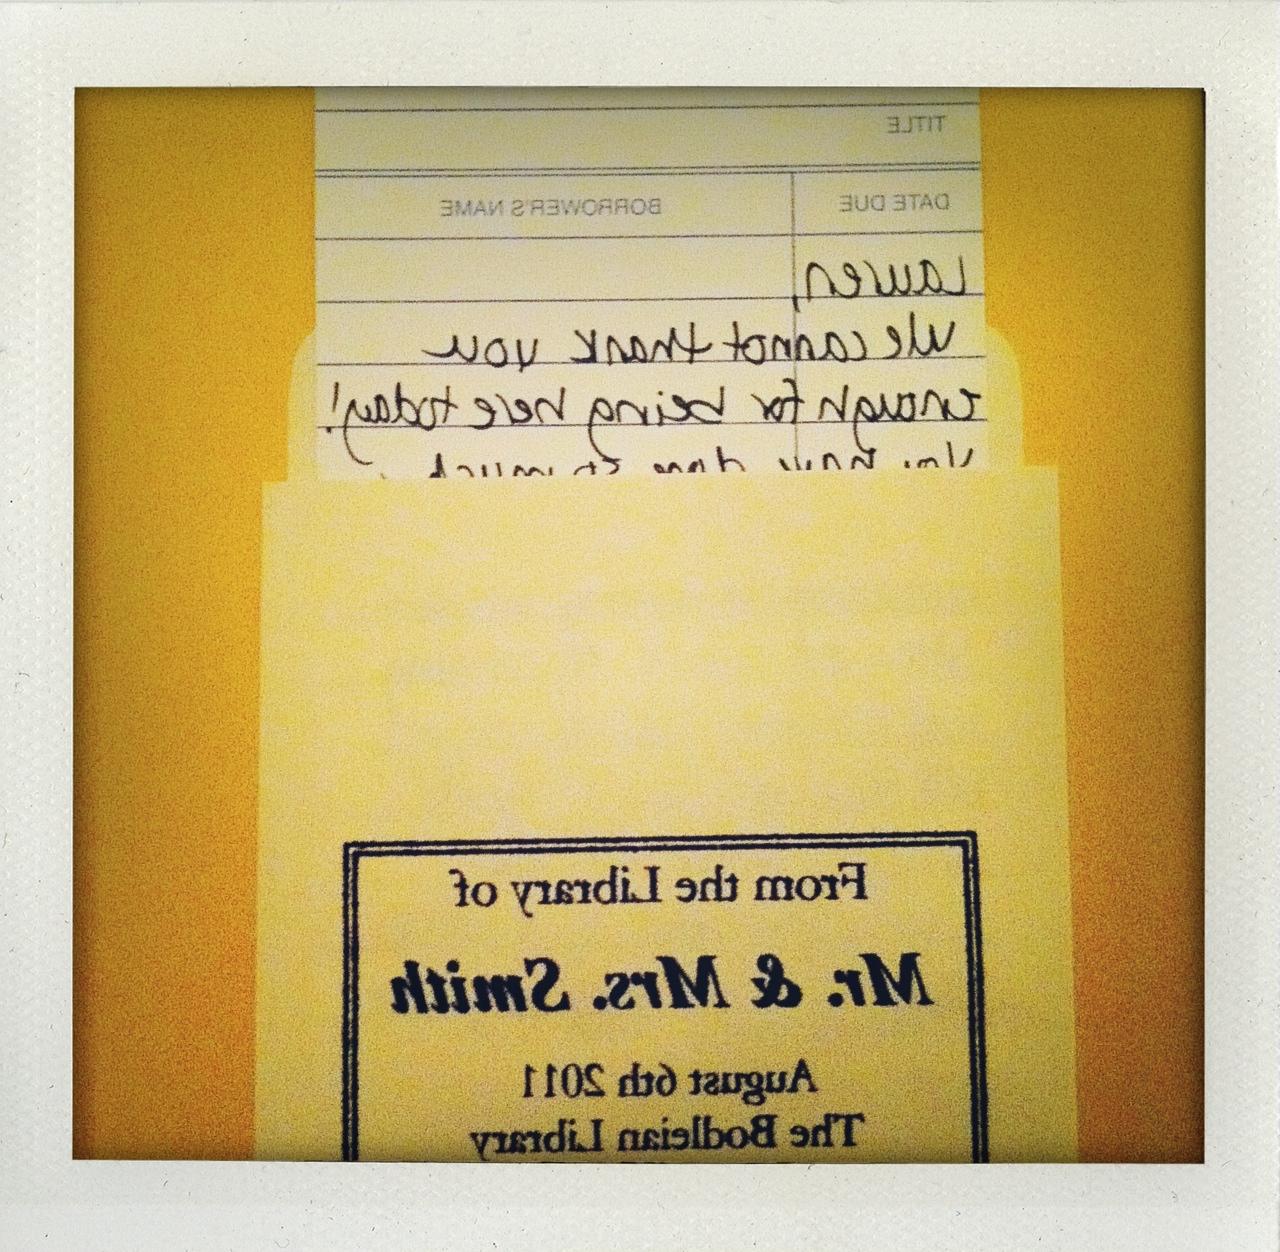 TITLE
DATE DUE BORROWER'S NAME
Lauren,
We cannot thank you
enough for being here today!
You have done so much
From the Library of
Mr. & Mrs. Smith
August 6th 2011
The Bodleian Library